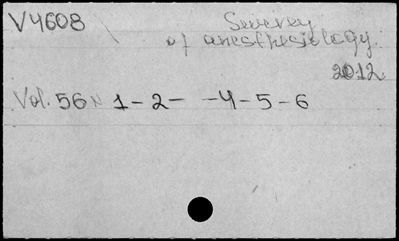 V4608
Suwrey
of anesthesiology.
2012
Vol. 56 N 1-2- -4-5-6